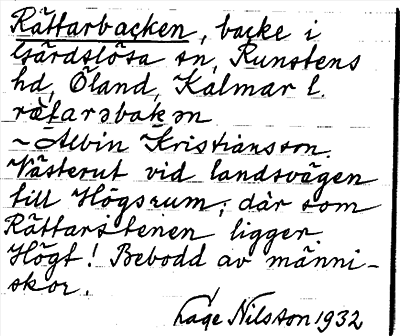 Rättarbacken, backe i
Gärdslösa sn, Runstens
hd, Öland, Kalmar l.
rætarəbakən
~ Albin Kristiansson.
Västerut vid landsvägen
till Högsrum; där som
Rättarstenen ligger.
Högt! Bebodd av männi-
skor.
Låge Nilsson 1932